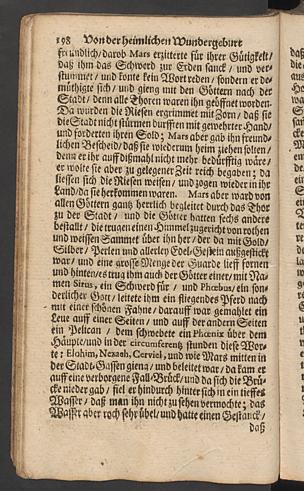 198 Von der heimlichen Wundergeburt
freundlich/darob Mars erzitterte für ihrer Gütigkeit/
daß ihm das Schwerd zur Erden sanck / und ver-
stummet / und konte kein Wort reden / sondern er de-
müthigte sich / und gieng mit den Göttern nach der
Stadt / denn alle Thoren waren ihn geöffnet worden.
Da wurden die Riesen ergrimmet mit Zorn / daß sie
die Stadt nicht stürmen durfften mit gewehrter Hand/
und forderten ihren Sold; Mars aber gab ihn freund-
lichen Bescheid/daß sie wiederum heim ziehen solten/
denn er ihr auff dißmahl nicht mehr bedürfftig wäre/
er wolte sie aber zu gelegener Zeit reich begaben; da
liessen sich die Riesen weisen / und zogen wieder in ihr
Land/da sie herkommen waren. Mars aber ward von
allen Göttern gantz herrlich begleitet durch das Thor
zu der Stadt / und die Götter hatten sechs andere
bestallt / die trugen einen Himmel zugericht von rothen
und weissen Sammet über ihn her / der da mit Gold/
Silber / Perlen und allerley Edel-Gestein außgestickt
war / und eine grosse Menge der Guarde lieff fornen
und hinden/es trug ihm auch der Götter einer/mit Na-
men Sirus, ein Schwerd für / und Phœbus/ ein son-
derlicher Gott / leitete ihm ein fliegendes Pferd nach
mit einer schönen Fahne / darauff war gemahlet ein
Leue auff einer Seiten / und auff der andern Seiten
ein Pelican / dem schwebete ein Phœnix über dem
Häupte/und in der circumferentz stunden diese Wor-
te: Elohim, Nezach, Cerviel, und wie Mars mitten in
der Stadt-Gassen gieng / und beleitet war / da kam er
auff eine verborgene Fall-Brück/ und da sich die Brü-
cke nieder gab / fiel er hindurch hinter sich in ein tieffes
Wasser / daß man ihn nicht zu sehen vermochte; das
Wasser aber roch sehr übel/und hatte einen Gestanck/
daß